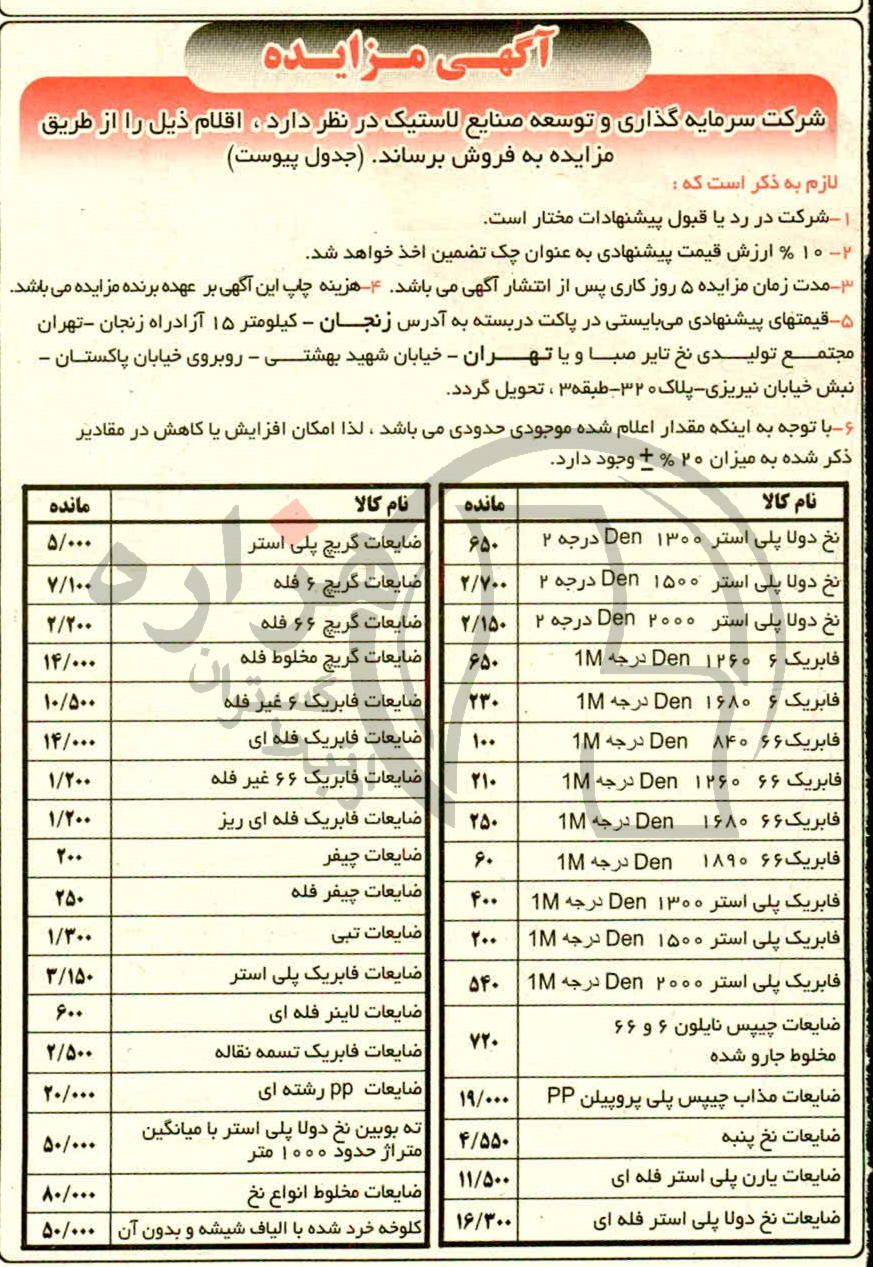 آگهـی مـزایـده
شرکت سرمایه گذاری و توسعه صنایع لاستیک در نظر دارد ، اقلام ذیل را از طریق
مزایده به فروش برساند. (جدول پیوست)
لازم به ذکر است که :
۱-شرکت در رد یا قبول پیشنهادات مختار است.
۲- ۱۰ % ارزش قیمت پیشنهادی به عنوان چک تضمین اخذ خواهد شد.
۳-مدت زمان مزایده ۵ روز کاری پس از انتشار آگهی می باشد. ۴-هزینه چاپ این آگهی بر عهده برنده مزایده می باشد.
۵-قیمتهای پیشنهادی می‌بایستی در پاکت دربسته به آدرس زنجـــان - کیلومتر ۱۵ آزادراه زنجان -تهران
مجتمـــع تولیـــدی نخ تایر صبـــا و یا تهـــران - خیابان شهید بهشتـــی - روبروی خیابان پاکستـان -
نبش خیابان نیریزی-پلاک۳۲۰-طبقه۳ ، تحویل گردد.
۶-با توجه به اینکه مقدار اعلام شده موجودی حدودی می باشد ، لذا امکان افزایش یا کاهش در مقادیر
ذکر شده به میزان ۲۰ % ± وجود دارد.
نام کالا مانده
نخ دولا پلی استر ۱۳۰۰ Den درجه ۲ ۶۵۰
نخ دولا پلی استر ۱۵۰۰ Den درجه ۲ ۲/۷۰۰
نخ دولا پلی استر ۲۰۰۰ Den درجه ۲ ۲/۱۵۰
فابریک ۶ ۱۲۶۰ Den درجه 1M ۶۵۰
فابریک ۶ ۱۶۸۰ Den درجه 1M ۲۳۰
فابریک۶۶ ۸۴۰ Den درجه 1M ۱۰۰
فابریک ۶۶ ۱۲۶۰ Den درجه 1M ۲۱۰
فابریک۶۶ ۱۶۸۰ Den درجه 1M ۲۵۰
فابریک۶۶ ۱۸۹۰ Den درجه 1M ۶۰
فابریک پلی استر ۱۳۰۰ Den درجه 1M ۴۰۰
فابریک پلی استر ۱۵۰۰ Den درجه 1M ۲۰۰
فابریک پلی استر ۲۰۰۰ Den درجه 1M ۵۴۰
ضایعات چیپس نایلون ۶ و ۶۶
مخلوط جارو شده ۷۲۰
ضایعات مذاب چیپس پلی پروپیلن PP ۱۹/۰۰۰
ضایعات نخ پنبه ۴/۵۵۰
ضایعات یارن پلی استر فله ای ۱۱/۵۰۰
ضایعات نخ دولا پلی استر فله ای ۱۶/۳۰۰
نام کالا مانده
ضایعات گریچ پلی استر ۵/۰۰۰
ضایعات گریچ ۶ فله ۷/۱۰۰
ضایعات گریچ ۶۶ فله ۲/۲۰۰
ضایعات گریچ مخلوط فله ۱۴/۰۰۰
ضایعات فابریک ۶ غیر فله ۱۰/۵۰۰
ضایعات فابریک فله ای ۱۴/۰۰۰
ضایعات فابریک ۶۶ غیر فله ۱/۲۰۰
ضایعات فابریک فله ای ریز ۱/۲۰۰
ضایعات چیفر ۲۰۰
ضایعات چیفر فله ۲۵۰
ضایعات تبی ۱/۳۰۰
ضایعات فابریک پلی استر ۳/۱۵۰
ضایعات لاینر فله ای ۶۰۰
ضایعات فابریک تسمه نقاله ۲/۵۰۰
ضایعات pp رشته ای ۲۰/۰۰۰
ته بوبین نخ دولا پلی استر با میانگین
متراژ حدود ۱۰۰۰ متر ۵۰/۰۰۰
ضایعات مخلوط انواع نخ ۸۰/۰۰۰
کلوخه خرد شده با الیاف شیشه و بدون آن ۵۰/۰۰۰
هزاره